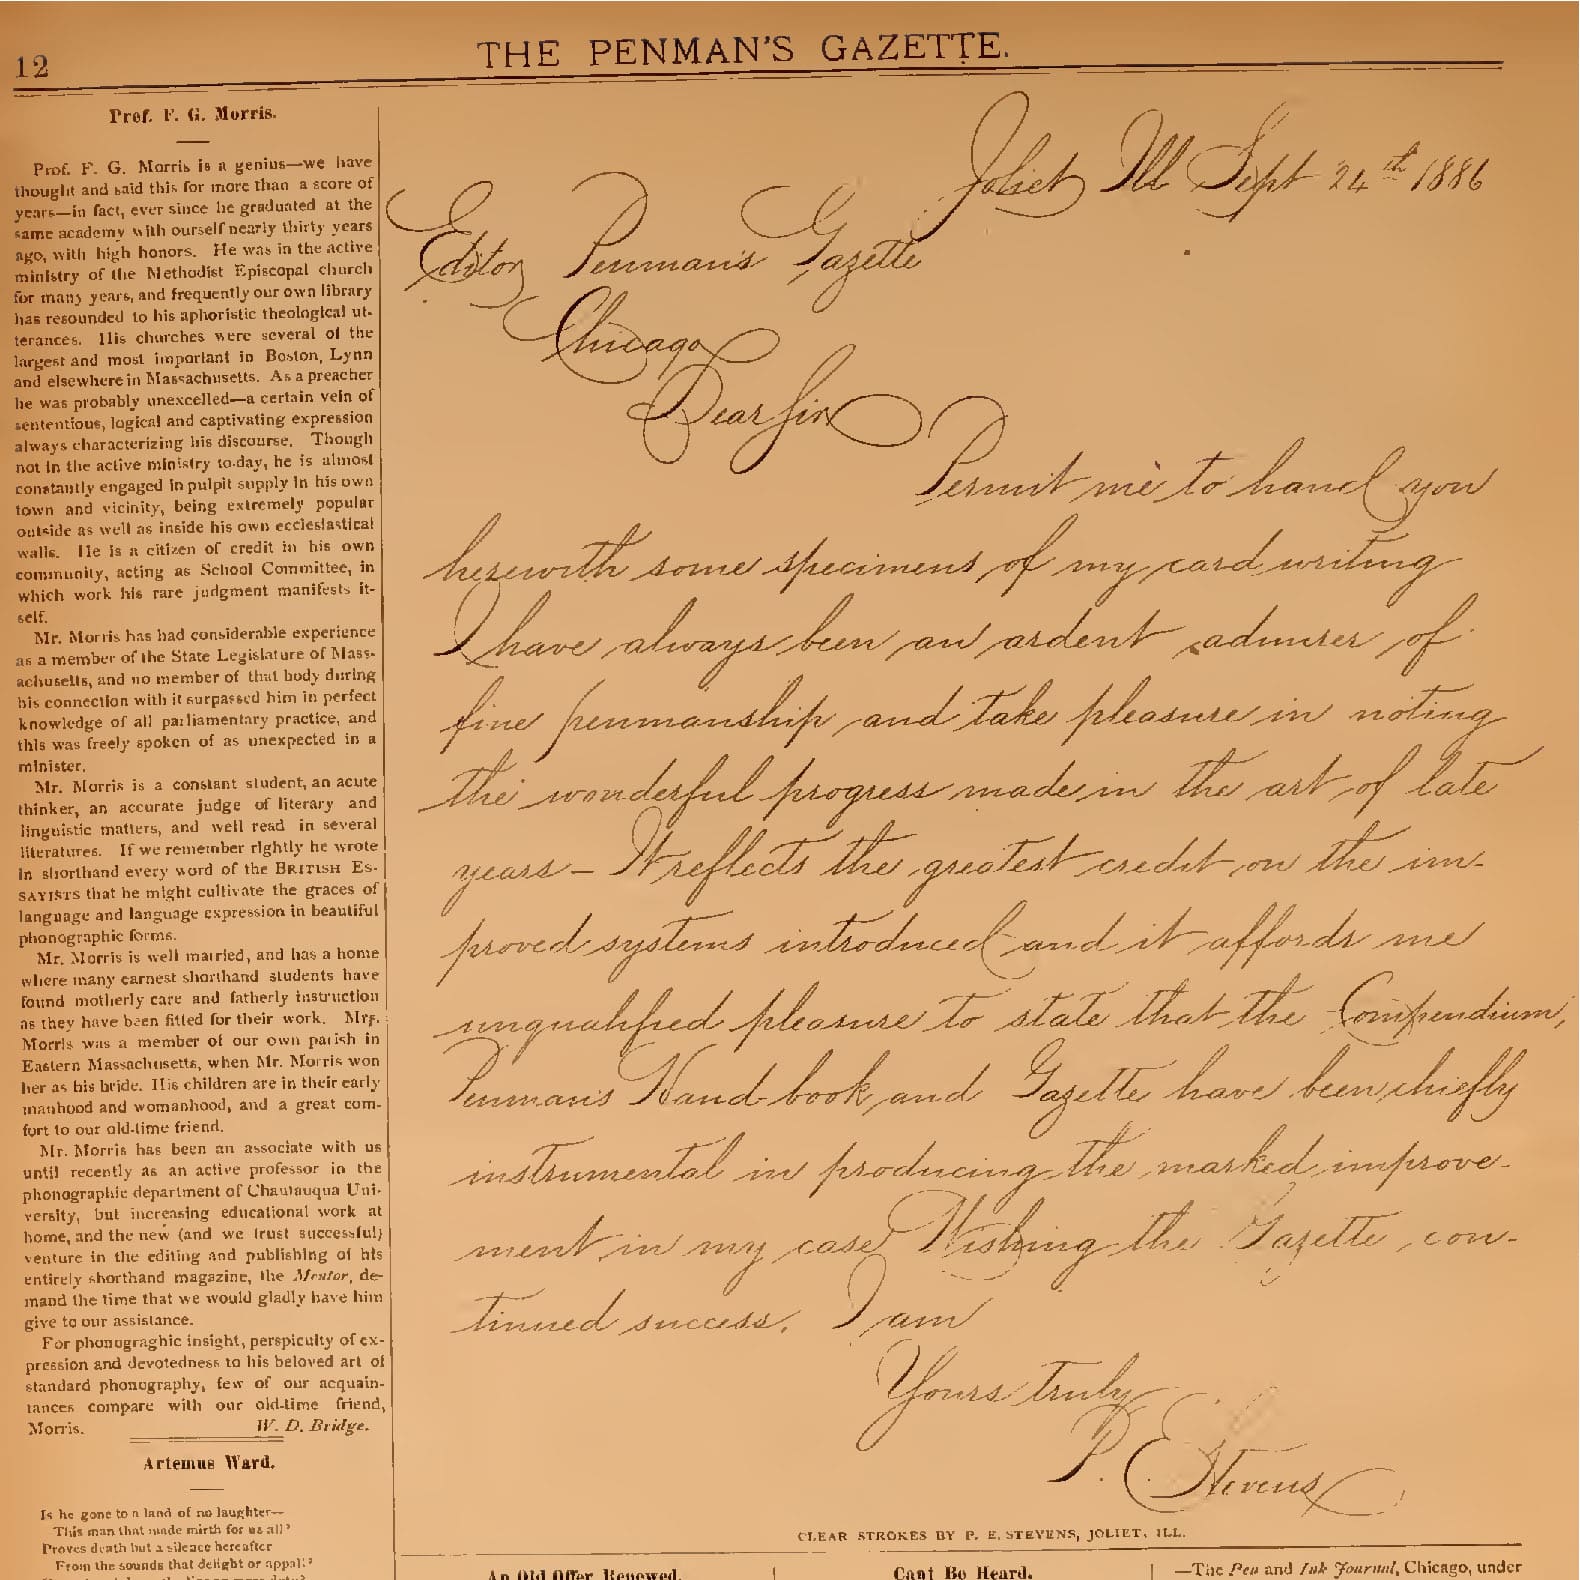 12
THE PENMAN'S GAZETTE.
Prof. F. G. Morris.
Prof. F. G. Morris is a genius—we have
thought and said this for more than a score of
years—in fact, ever since he graduated at the
same academy with ourself nearly thirty years
ago, with high honors. He was in the active
ministry of the Methodist Episcopal church
for many years, and frequently our own library
has resounded to his aphoristic theological ut-
terances. His churches were several of the
largest and most important in Boston, Lynn
and elsewhere in Massachusetts. As a preacher
he was probably unexcelled—a certain vein of
sententious, logical and captivating expression
always characterizing his discourse. Though
not in the active ministry to-day, he is almost
constantly engaged in pulpit supply in his own
town and vicinity, being extremely popular
outside as well as inside his own ecclesiastical
walls. He is a citizen of credit in his own
community, acting as School Committee, in
which work his rare judgment manifests it-
self.
Mr. Morris has had considerable experience
as a member of the State Legislature of Mass-
achusetts, and no member of that body during
his connection with it surpassed him in perfect
knowledge of all parliamentary practice, and
this was freely spoken of as unexpected in a
minister.
Mr. Morris is a constant student, an acute
thinker, an accurate judge of literary and
linguistic matters, and well read in several
literatures. If we remember rightly he wrote
in shorthand every word of the BRITISH ES-
SAYISTS that he might cultivate the graces of
language and language expression in beautiful
phonographic forms.
Mr. Morris is well married, and has a home
where many earnest shorthand students have
found motherly care and fatherly instruction
as they have been fitted for their work. Mrs.
Morris was a member of our own parish in
Eastern Massachusetts, when Mr. Morris won
her as his bride. His children are in their early
manhood and womanhood, and a great com-
fort to our old-time friend.
Mr. Morris has been an associate with us
until recently as an active professor in the
phonographic department of Chautauqua Uni-
versity, but increasing educational work at
home, and the new (and we trust successful)
venture in the editing and publishing of his
entirely shorthand magazine, the Mentor, de-
mand the time that we would gladly have him
give to our assistance.
For phonograghic insight, perspiculty of ex-
pression and devotedness to his beloved art of
standard phonography, few of our acquain-
tances compare with our old-time friend,
Morris. W. D. Bridge.
Artemus Ward.
Is he gone to a land of no laughter—
This man that made mirth for us all?
Proves death but a silence hereafter
From the sounds that delight or appall?
Joliet Ill Sept 24th 1886
Editor Penman's Gazette
Chicago
Dear Sir
Permit me to hand you
herewith some specimens of my card writing
I have always been an ardent admirer of
fine penmanship and take pleasure in noting
the wonderful progress made in the art of late
years – It reflects the greatest credit on the im-
proved systems introduced and it affords me
unqualified pleasure to state that the Compendium,
Penman's Hand-book and Gazette have been chiefly
instrumental in producing the marked improve-
ment in my case Wishing the Gazette con-
tinued success, I am
Yours truly
P. E. Stevens
CLEAR STROKES BY P. E. STEVENS, JOLIET, ILL.
An Old Offer Renewed.
Cant Be Heard.
—The Pen and Ink Journal, Chicago, under